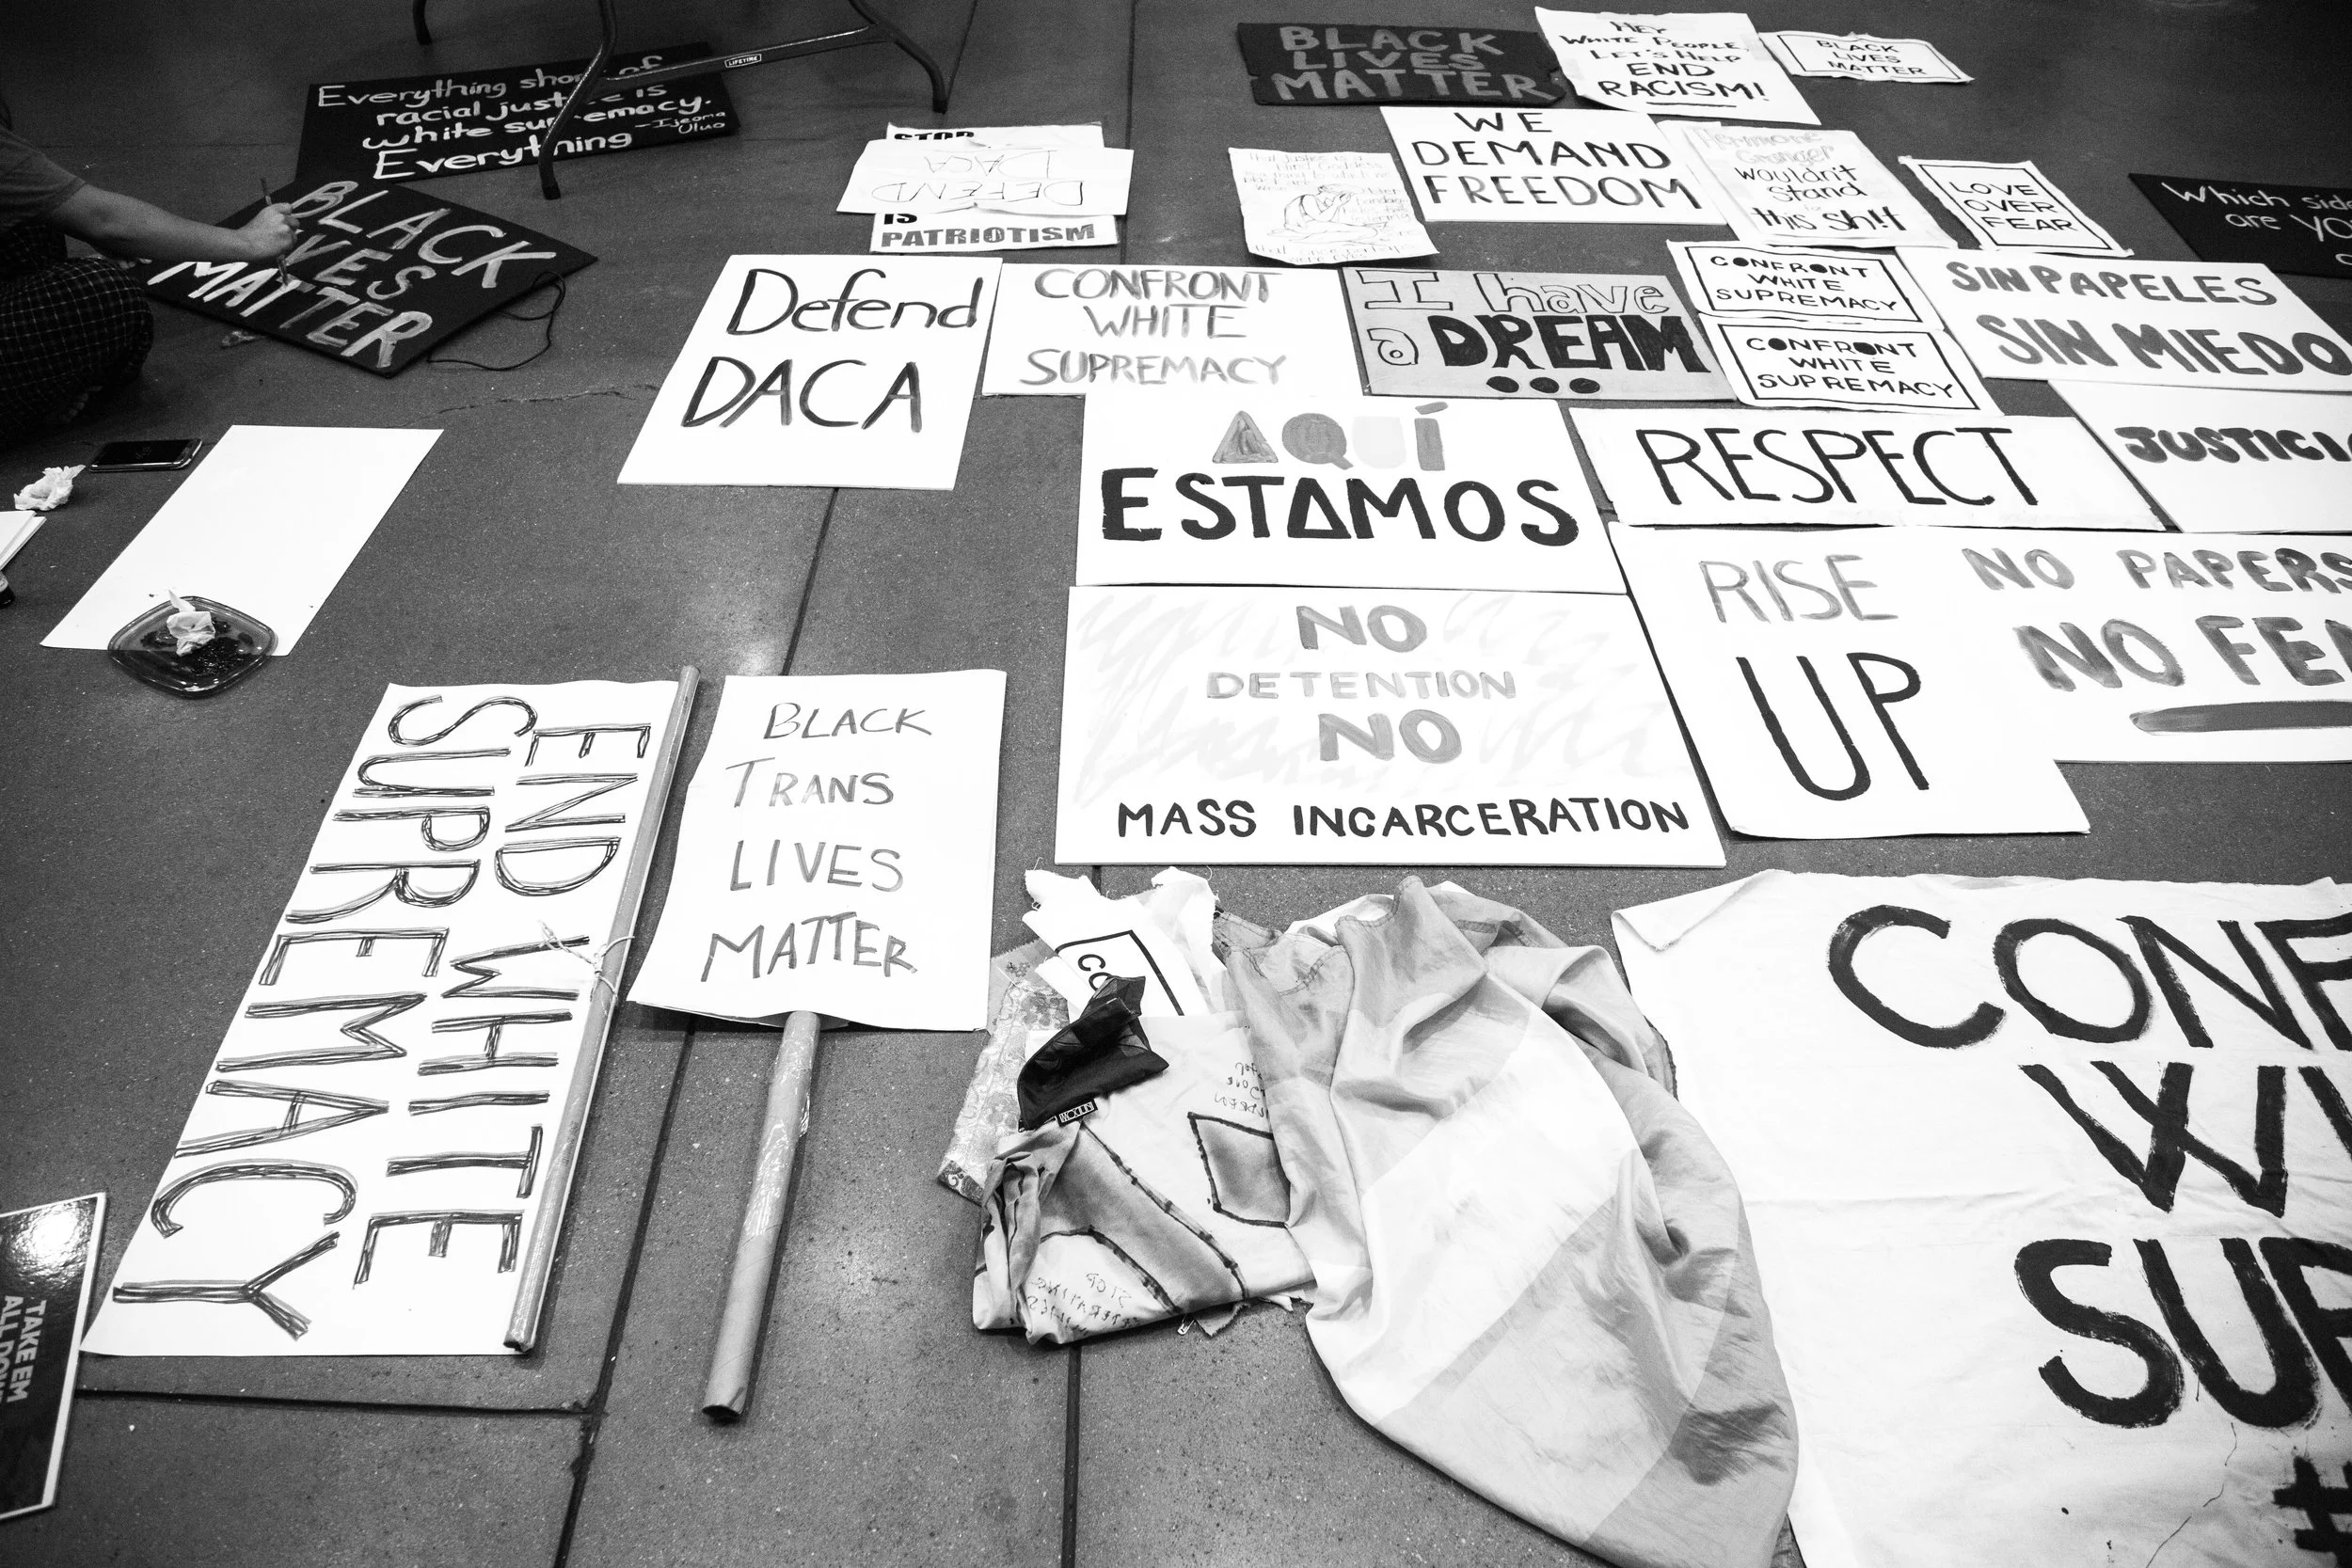 Everything short of
racial justice is
white supremacy.
Everything
-Ijeoma
Oluo
LIFETIME
BLACK
LIVES
MATTER
BLACK
LIVES
MATTER
HEY
WHITE PEOPLE,
LET'S HELP
END
RACISM!
BLACK
LIVES
MATTER
STOP
DEFEND
DACA
IS
PATRIOTISM
WE
DEMAND
FREEDOM
Hermione
Granger
wouldn't
stand
this sh!t
LOVE
OVER
FEAR
Which side
are YO
Defend
DACA
CONFRONT
WHITE
SUPREMACY
I have
a DREAM
...
CONFRONT
WHITE
SUPREMACY
CONFRONT
WHITE
SUPREMACY
SIN PAPELES
SIN MIEDO
AQUÍ
ESTAMOS
RESPECT
JUSTICI
NO
DETENTION
NO
MASS INCARCERATION
RISE
UP
NO PAPERS
NO FE
END WHITE
SUPREMACY
BLACK
TRANS
LIVES
MATTER
CO
STOP
CONF
WI
SUP
#
TAKE EM
ALL DOW